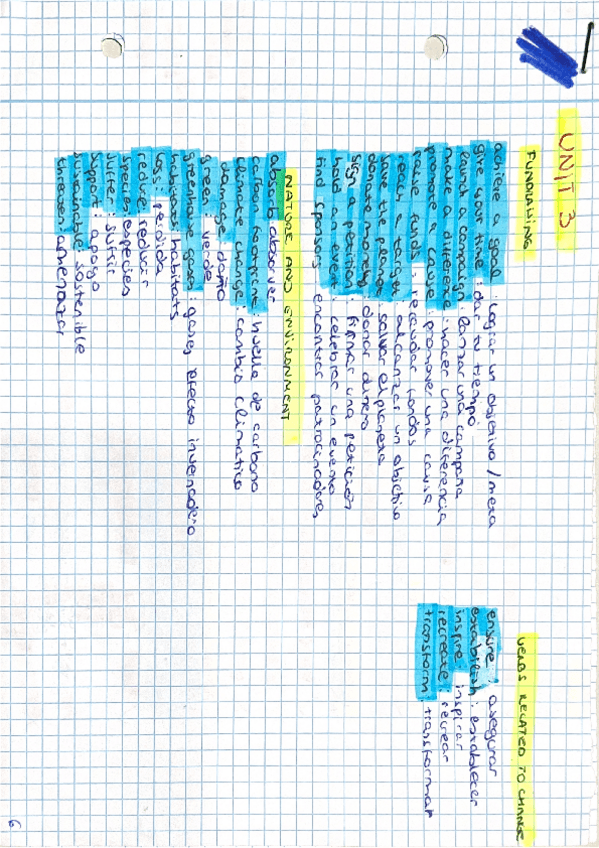 UNIT 3
FUNDRAISING
achieve a goal: lograr un objetivo / meta
give your time: dar tu tiempo
launch a campaign: lanzar una campaña
make a difference: hacer una diferencia
promote a cause: promover una causa
raise funds: recaudar fondos
reach a target: alcanzar un objetivo
save the planet: salvar el planeta
donate money: donar dinero
sign a petition: firmar una petición
hold an event: celebrar un evento
find sponsors encontrar patrocinadores
NATURE AND ENVIRONMENT
absorb absorver
carbon footprint: huella de carbono
climate change: cambio climatico
damage daño
green: verde
greenhouse gases: gases efecto invernadero
habitats: habitats
loss: perdida
reduce: reducir
species: especies
suffer: sufrir
support: apoyo
sustainable: sostenible
threaten: amenazar
VERBS RELATED TO CHANGE
ensure: asegurar
establish: establecer
inspire: inspirar
recreate: recrear
transform: transformar
6